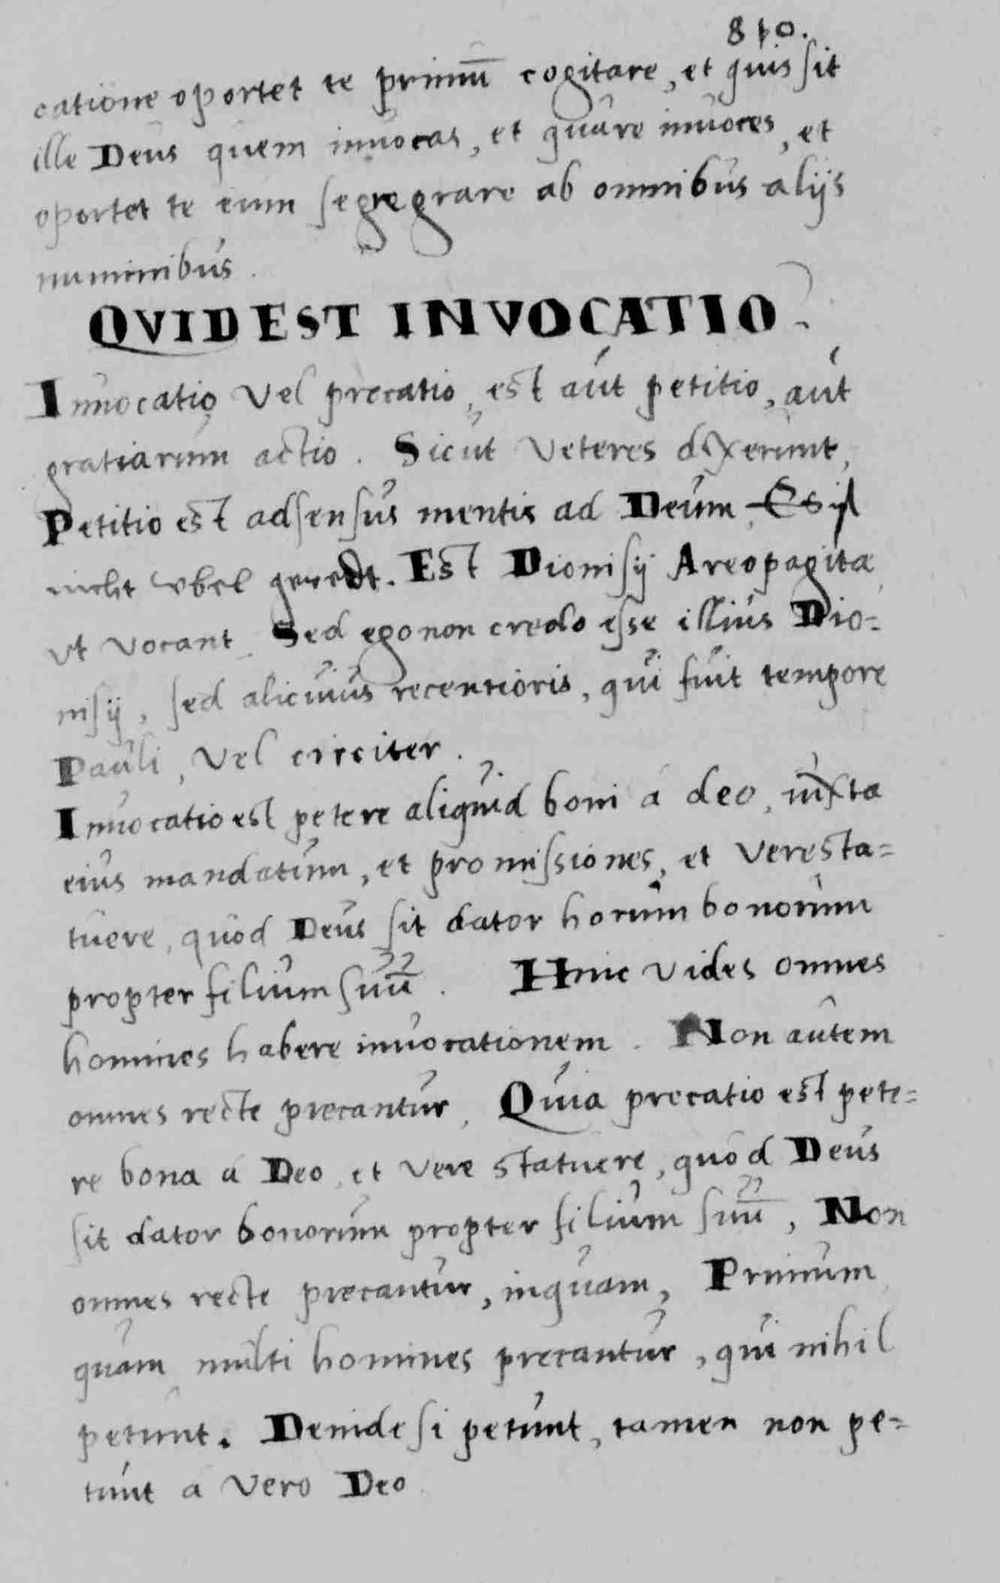 810.
catione oportet te primū cogitare, et quis sit
ille Deus quem inuocas, et quare inuoces, et
oportet te eum segregrare ab omnibus alijs
numinibus.
QVID EST INVOCATIO?
Inuocatio vel precatio, est aut petitio, aut
gratiarum actio. Sicut veteres dixerunt,
Petitio est adsensus mentis ad Deum. Es ist
nicht vbel geredt. Est Dionisij Areopagitæ
vt vocant. Sed ego non credo esse illius Dio=
nisij, sed alicuius recentioris, qui fuit tempore
Pauli, vel circiter.
Inuocatio est petere aliquid boni a deo, iuxta
eius mandatum, et promissiones, et vere sta=
tuere, quod Deus sit dator horum bonorum
propter filium suū. Hinc vides omnes
homines habere inuocationem. Non autem
omnes recte precantur, Quia precatio est pete=
re bona a Deo, et vere statuere, quod Deus
sit dator bonorum propter filium suū, Non
omnes recte precantur, inquam, Primum
quam multi homines precantur, qui nihil
petunt. Deinde si petunt, tamen non pe=
tunt a vero Deo